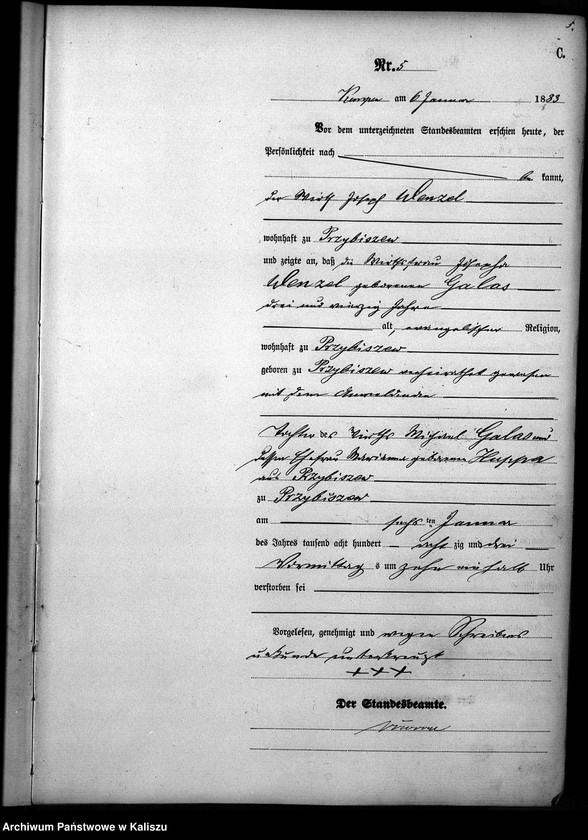 5.
C.
Nr. 5
am 6 Januar 1883
Vor dem unterzeichneten Standesbeamten erschien heute, der
Persönlichkeit nach
be kannt,
der Wirth Joseph Wenzel
wohnhaft zu Przybiszew
und zeigte an, daß die Wirthsfrau Josepha
Wenzel geborenen Galas
drei und vierzig Jahre
alt, evangelischer Religion,
wohnhaft zu Przybiszew
geboren zu Przybiszew verheirathet gewesen
mit dem Anmeldenden
Tochter des Wirths Michael Galas und
dessen Ehefrau Marianna geborenen Huppa
aus Przybiszew
zu Przybiszew
am sechs ten Januar
des Jahres tausend acht hundert acht zig und drei
Vormittag s um zehn ein halb Uhr
verstorben sei
Vorgelesen, genehmigt und wegen Schreibens
unkunde unterkreuzt
+++
Der Standesbeamte.
Archiwum Państwowe w Kaliszu